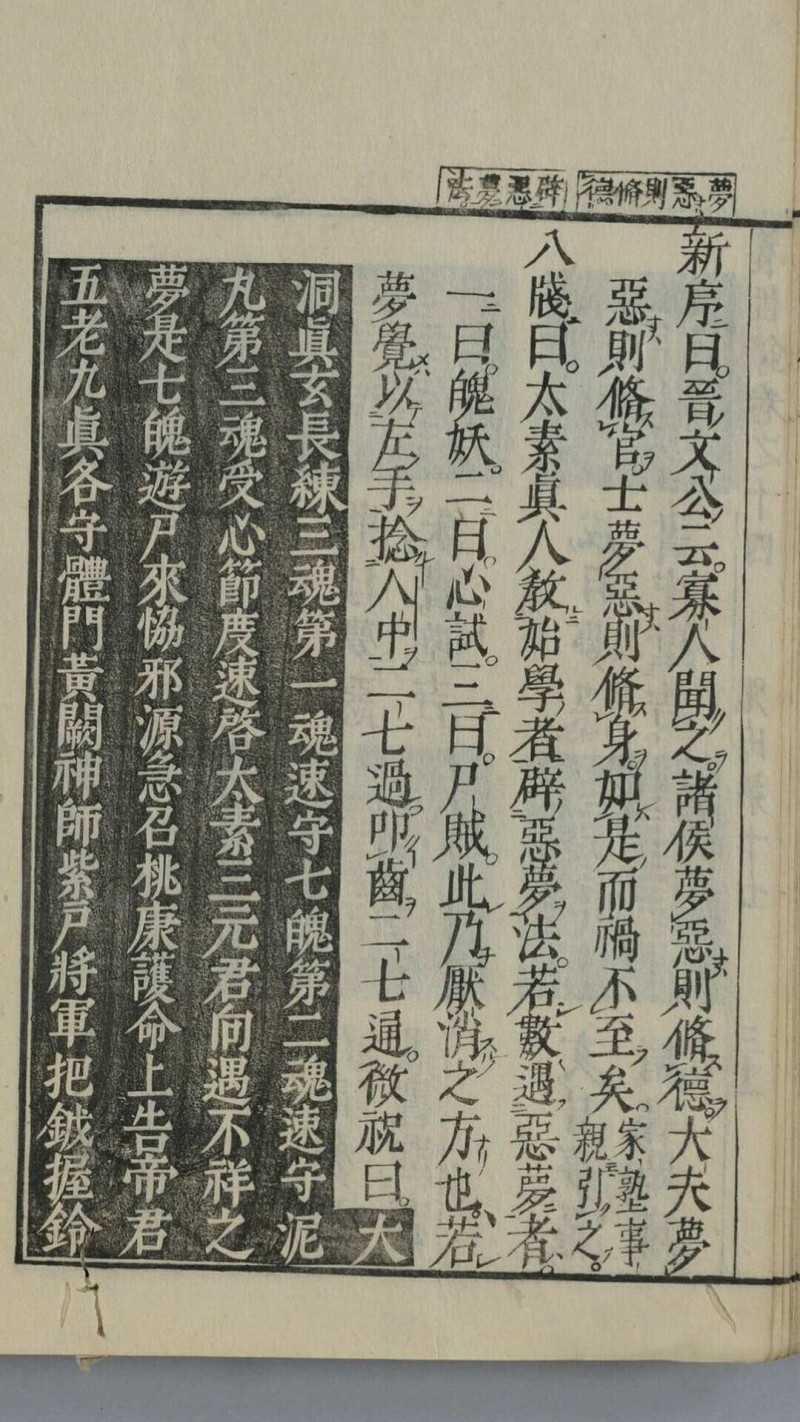 夢惡則脩德
辟惡夢法
新序曰晉文公云寡人聞之諸侯夢惡則脩德大夫夢
惡則脩官士夢惡則脩身如是而禍不至矣家塾事親引之
八牋曰太素眞人敎始學者辟惡夢法若數遇惡夢者
一曰魄妖二曰心試三曰尸賊此乃厭消之方也若
夢覺以左手捻人中二七過叩齒二七通微祝曰大
洞眞玄長練三魂第一魂速守七魄第二魂速守泥
丸第三魂受心節度速啓太素三元君向遇不祥之
夢是七魄遊尸來恊邪源急召桃康護命上告帝君
五老九眞各守體門黃闕神師紫戸將軍把鉞握鈴